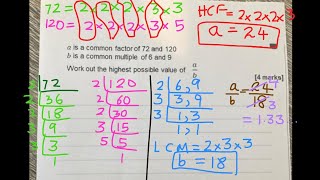 72 = 2×2×2×3×3
120 = 2×2×2×3×5
HCF = 2×2×2×3
a = 24
a is a common factor of 72 and 120
b is a common multiple of 6 and 9
Work out the highest possible value of a/b
[4 marks]
2 72
2 36
2 18
3 9
3 3
1
2 120
2 60
2 30
3 15
5 5
1
2 6, 9
3 3, 9
3 1, 3
1, 1
LCM = 2×3×3
b = 18
a/b = 24/18 4/3
= 1.33